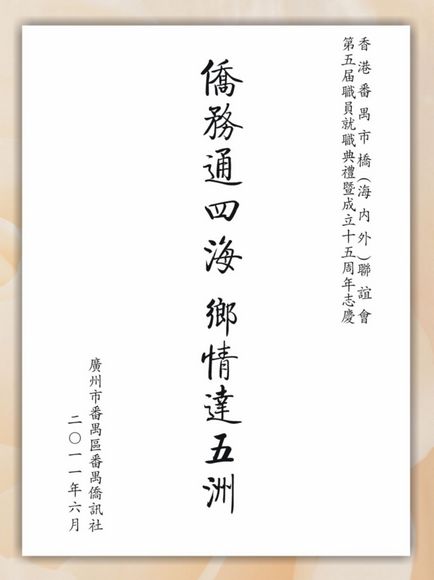 香港番禺市橋(海內外)聯誼會
第五届職員就職典禮暨成立十五周年志慶
僑務通四海 鄉情達五洲
廣州市番禺區番禺僑訊社
二〇一一年六月